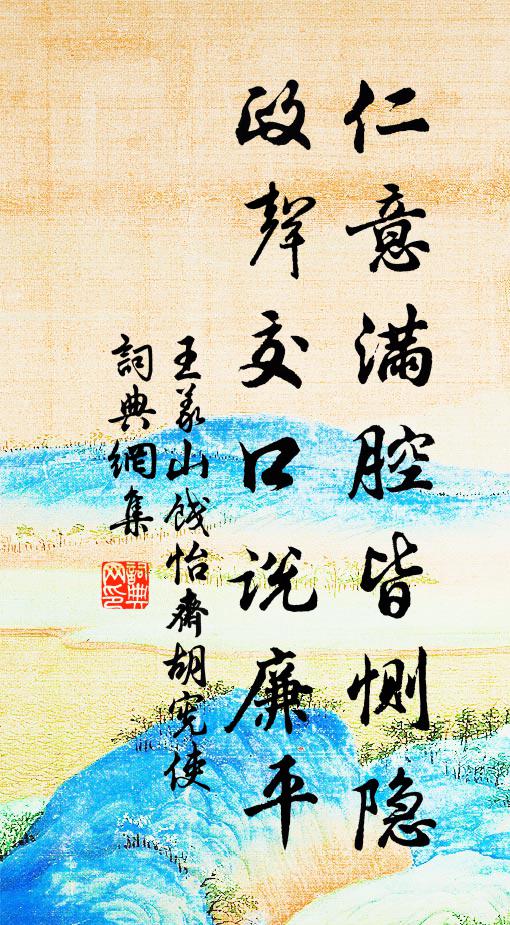 仁意满腔皆恻隐
政聲交口说廉平
王義山餞怡齋胡宪使
詞典網集